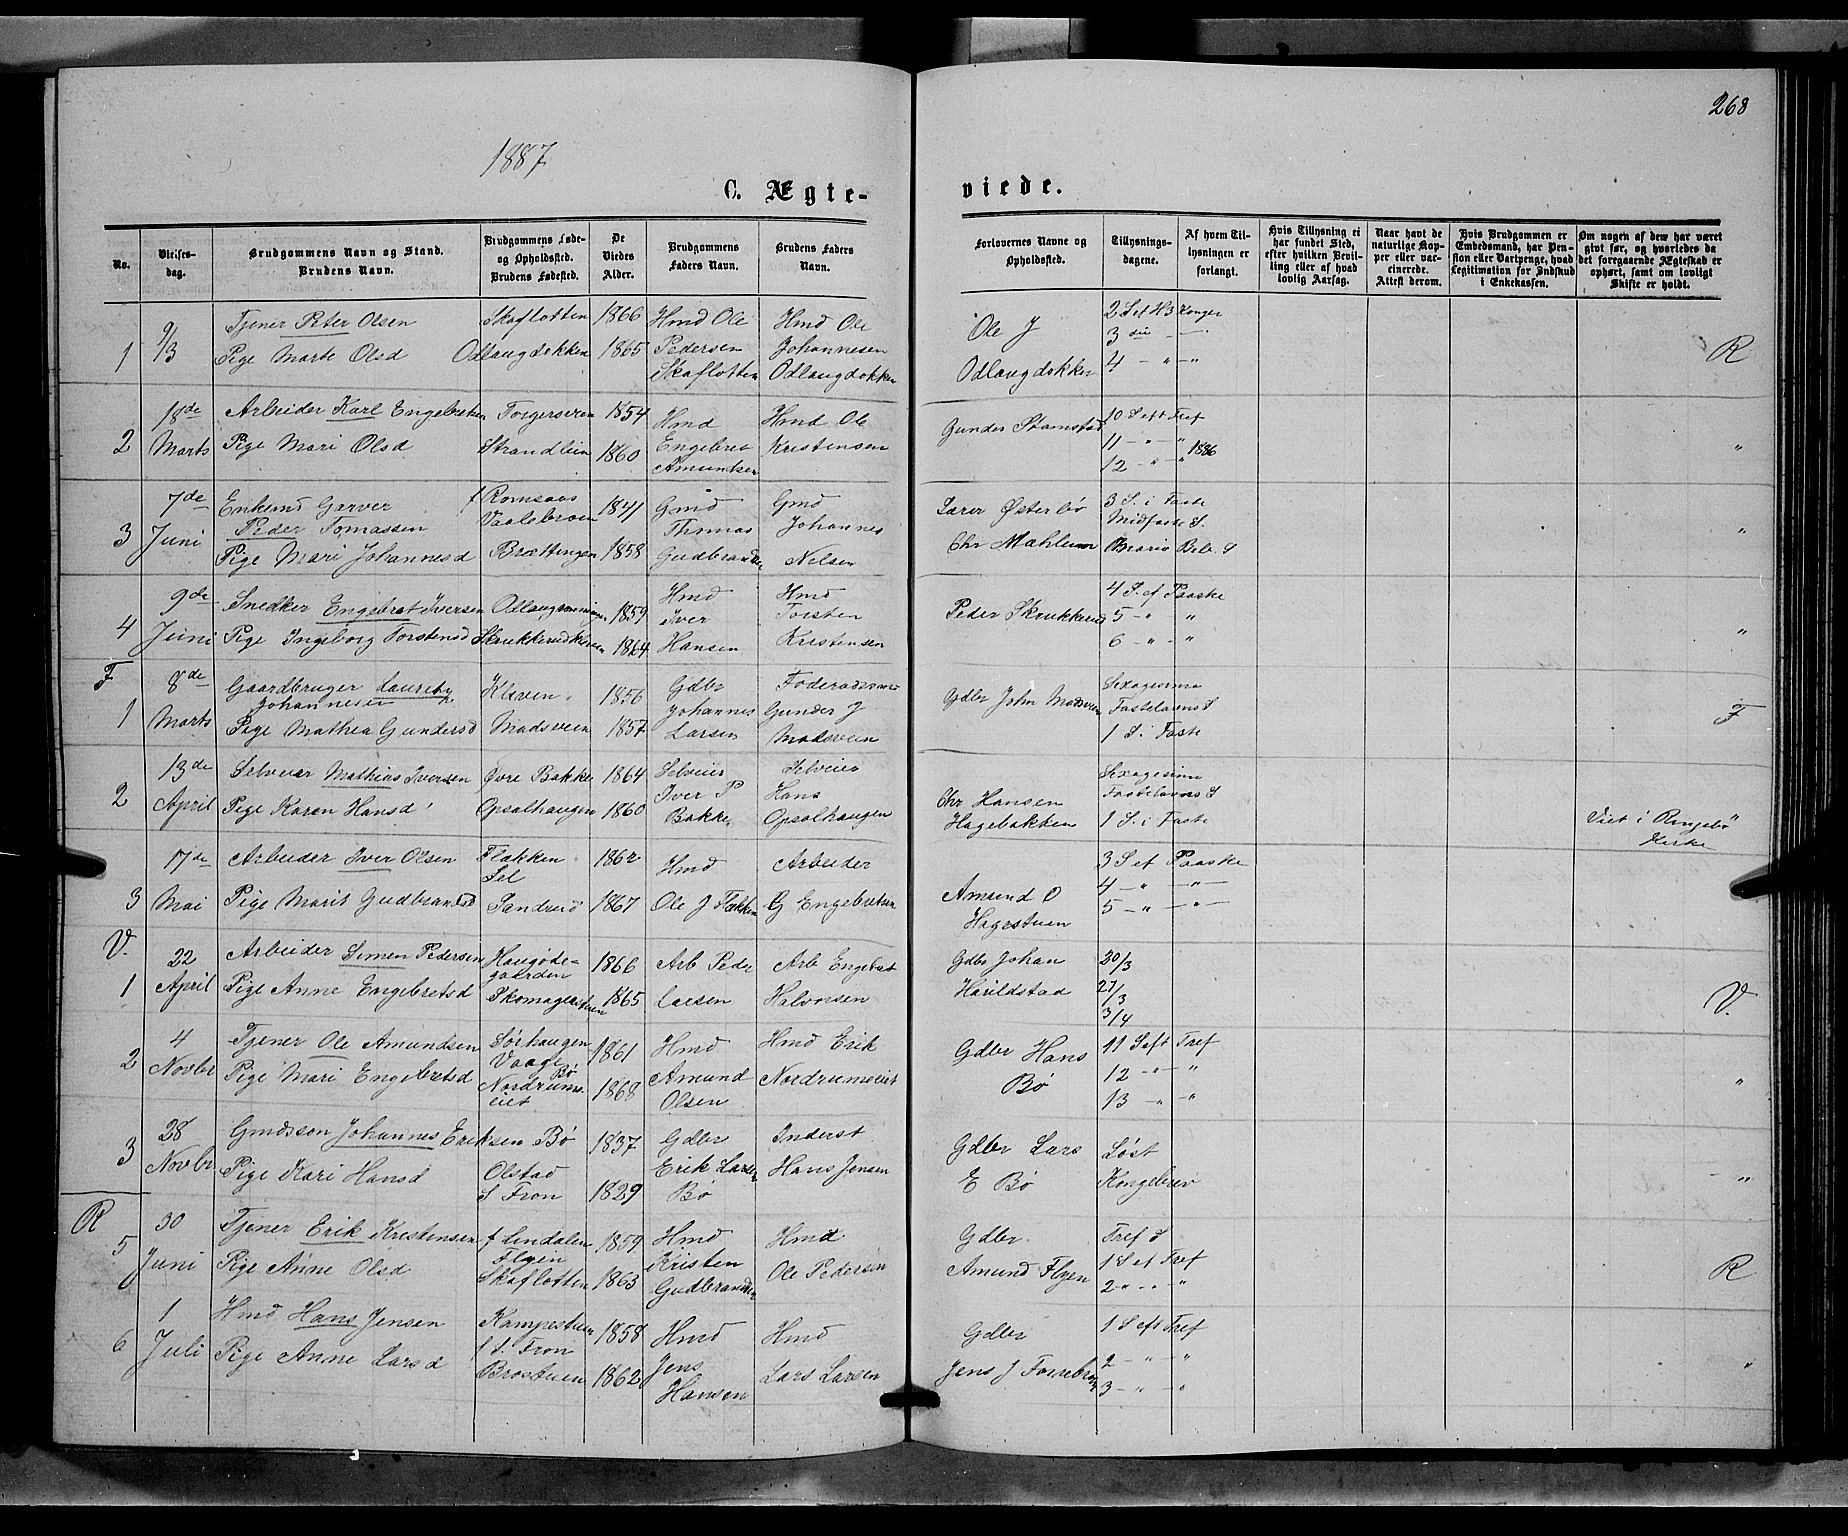 268
1887
C. Ægte-
viede.
No.
Vielses-
dag.
Brudgommens Navn og Stand.
Brudens Navn.
Brudgommens Føde-
og Opholdssted.
Brudens Fødested.
De
Viedes
Alder.
Brudgommens
Faders Navn.
Brudens Faders
Navn.
Forlovernes Navne og
Opholdssted.
Tillysnings-
dagene.
Af hvem Til-
lysningen er
forlangt.
Hvis Tillysning ei
har fundet Sted,
efter hvilken Bevil-
ling eller af hvad
lovlig Aarsag.
Naar havt de
naturlige Kop-
per eller vac-
cinerede.
Attest derom.
Hvis Brudgommen er
Embedsmand, har Pen-
sion eller Vartpenge, hvad
Legitimation for Indskud
i Enkekassen.
Om nogen af dem har været
gift før, og hvorledes da
det foregaaende Ægteskab er
ophørt, samt om lovligt
Skifte er holdt.
1
9/3
Tjener Peter Olsen
Pige Marte Olsd
Skaflotten
Odlaugdokken
1866
1865
Hmd Ole
Pedersen
Skaflotten
Hmd Ole
Johannesen
Odlaugdokken
Ole J
Odlaugdokken
2 S ef H 3 Konger
3 do — "
4 — " — "
R
2
18de
Marts
Arbeider Karl Engebretsen
Pige Mari Olsd
Torgerseren
Strandlien
1854
1860
Hmd
Engebret
Amundsen
Hmd Ole
Kristensen
Gunder Stamstad
10 S eft Tref
11 — " — "
12 — " — " 1886
"
3
7de
Juni
Enkemd Garver
Peder Tomassen
Pige Mari Johannesd
f Romsaas
Vaalebroen
Brættingen
1841
1858
Gmd
Thomas
Gudbrandsen
Gmd
Johannes
Nilsen
Lærer Østerbø
Chr Mæhlum
3 S. i Faste
Midfaste S.
Mariæ Beb. S
"
4
9de
Juni
Snedker Engebret Iversen
Pige Ingeborg Torstensd
1859
1864
Hmd
Iver
Hansen
Hmd
Torsten
Kristensen
Peder Skrukkerud
4 S. ef Paaske
5 - " "
6 - " - "
"
F
1
8de
Marts
Gaardbruger Lauritz
Johannesen
Pige Mathea Gundersd
Kleven
Madsveen
1856
1857
Gdbr
Johannes
Larsen
Føderaadsmd
Gunder J
Madsveen
Gdbr John Madsveen
Sexagesima
Fastelavns S
1 S. i Faste
F
2
13de
April
Selveier Mathias Iversen
Pige Karen Hansd
Øvre Bakke
Opsalhaugen
1864
1860
Selveier
Iver P
Bakke
Selveier
Hans
Opsalhaugen
Chr Hansen
Hagebakken
Sexagesima
Fastelavns S
1 S. i Faste
Viet i Ringebo
Kirke
3
17de
Mai
Arbeider Iver Olsen
Pige Marit Gudbrandsd
Flakken
Sel
Sandrud
1862
1867
Hmd
Ole J Flakken
Arbeider
G Engebretsen
Amund O
Hagestuen
3 S ef Paaske
4 — " — " —
5 — " — " —
V.
1
22
April
Arbeider Simen Pedersen
Pige Anne Engebretsd
Haugøde-
gaarden
Skomagerstuen
1866
1865
Arb Peder
Larsen
Arb Engebret
Halvorsen
Gdbr Johan
Harildstad
20/3
27/3
3/4
V.
2
4
Novbr
Tjener Ole Amundsen
Pige Mari Engebretsd
Sørhaugen
Vaage
Bø
Nordrums-
eiet
1861
1868
Hmd
Amund
Olsen
Hmd Erik
Nordrumseiet
Gdbr Hans
Bø
11 S eft Tref
12 — " — "
13 — " "
"
3
28
Novbr
Gmdssøn Johannes Eriksen Bø
Pige Kari Hansd
Olstad
S Fron
1837
1829
Gdbr
Erik Larsen
Bø
Inderst
Hans Jensen
Gdbr Lars
E Bø
Løst
Kongebrev
"
R
5
30
Juni
Tjener Erik Kristensen
Pige Anne Olsd
f Lindalen
Flyen
Skaflotten
1859
1863
Hmd
Kristen
Gudbrandsen
Hmd
Ole Pedersen
Gdbr.
Amund Flyen
Tref S
1 S ef Tref
2 - " - "
R
6
1
Juli
Hmd Hans Jensen
Pige Anne Larsd
Kampestuen
f S. Fron
Brostuen
1858
1862
Hmd
Jens
Hansen
Hmd
Lars Larsen
Gdbr
1 S eft Tref
2 — " — "
3 — " — "
"